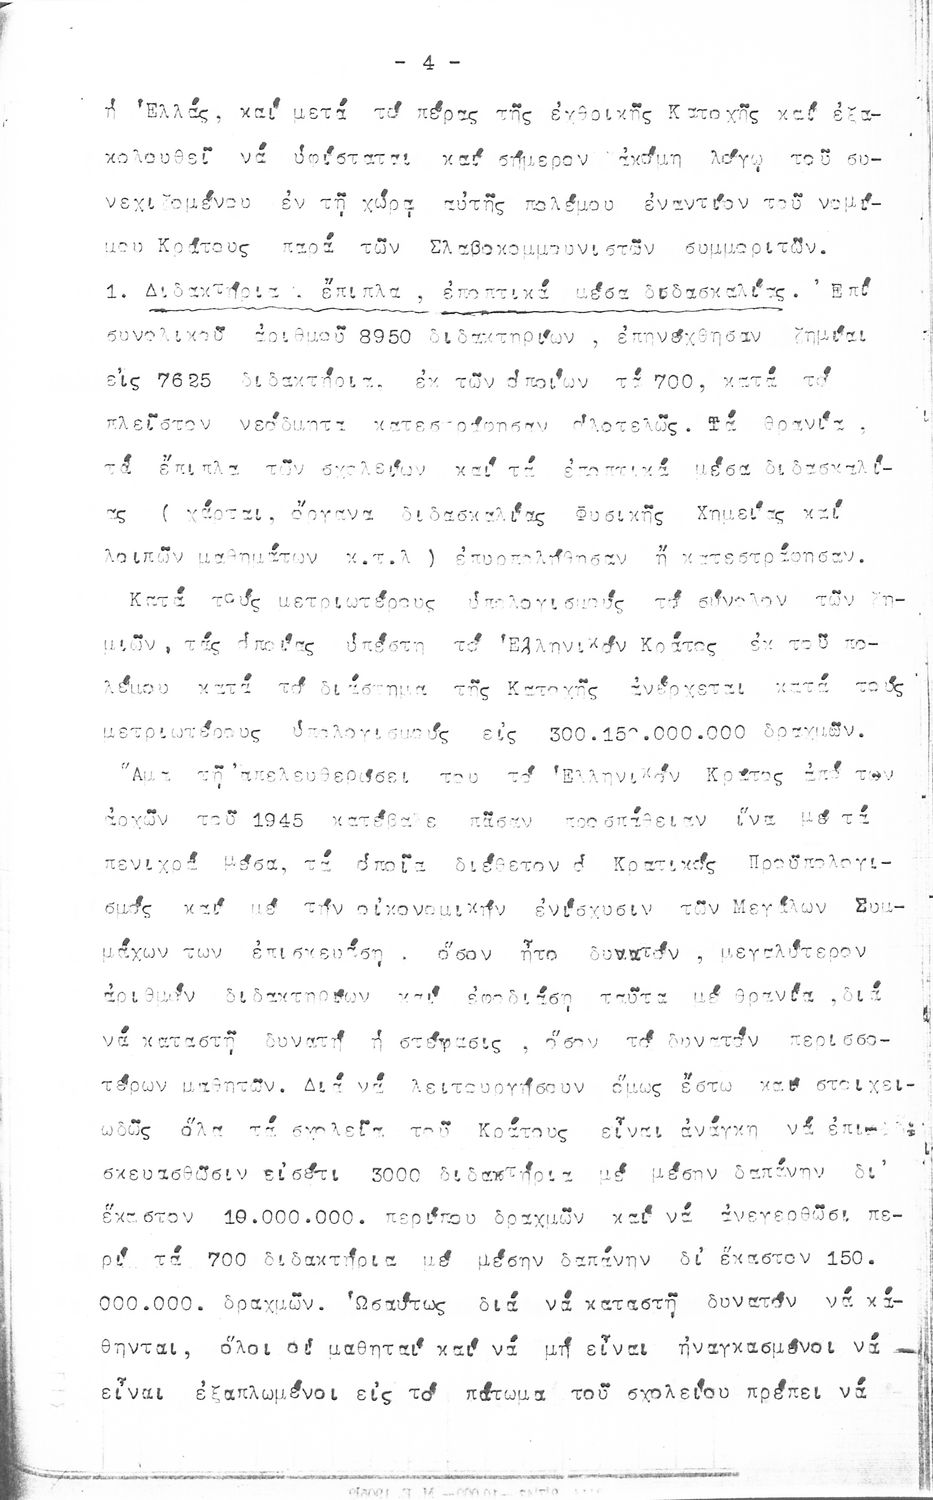 - 4 -
ἡ Ἑλλάς, καί μετά τό πέρας τῆς ἐχθρικῆς Κατοχῆς καί ἐξα-
κολουθεῖ νά ὑφίσταται καί σήμερον ἀκόμη λόγῳ τοῦ συ-
νεχιζομένου ἐν τῇ χώρᾳ αὐτῆς πολέμου ἐναντίον τοῦ νομί-
μου Κράτους παρά τῶν Σλαβοκομμουνιστῶν συμμοριτῶν.
1. Διδακτήρια . ἔπιπλα , ἐποπτικά μέσα διδασκαλίας. Ἐπί
συνολικοῦ ἀριθμοῦ 8950 διδακτηρίων , ἐπηνέχθησαν ζημίαι
εἰς 7625 διδακτήρια. ἐκ τῶν ὁποίων τά 700, κατά τό
πλεῖστον νεόδμητα κατεστράφησαν ὁλοτελῶς. Τά θρανία ,
τά ἔπιπλα τῶν σχολείων καί τά ἐποπτικά μέσα διδασκαλί-
ας ( χάρται, ὄργανα διδασκαλίας Φυσικῆς Χημείας καί
λοιπῶν μαθημάτων κ.τ.λ ) ἐπυρπολήθησαν ἤ κατεστράφησαν.
Κατά τούς μετριωτέρους ὑπολογισμούς τό σύνολον τῶν ζη-
μιῶν , τάς ὁποίας ὑπέστη τό Ἑλληνικόν Κράτος ἐκ τοῦ πο-
λέμου κατά τό διάστημα τῆς Κατοχῆς ἀνέρχεται κατά τούς
μετριωτέρους ὑπολογισμούς εἰς 300.150.000.000 δραχμῶν.
Ἅμα τῇ ἀπελευθερώσει του τό Ἑλληνικόν Κράτος ἀπό των
ἀρχῶν τοῦ 1945 κατέβαλε πᾶσαν προσπάθειαν ἵνα μέ τά
πενιχρά μέσα, τά ὁποῖα διέθετον ὁ Κρατικός Προϋπολογι-
σμός καί μέ τήν οἰκονομικήν ἐνίσχυσιν τῶν Μεγάλων Συμ-
μάχων των ἐπισκευάσῃ . ὅσον ἦτο δυνατόν , μεγαλύτερον
ἀριθμόν διδακτηρίων καί ἐφοδιάσῃ ταῦτα μέ θρανία ,διά
νά καταστῇ δυνατή ἡ στέγασις , ὅσον τό δυνατόν περισσο-
τέρων μαθητῶν. Διά νά λειτουργήσουν ὅμως ἔστω καί στοιχει-
ωδῶς ὅλα τά σχολεῖα τοῦ Κράτους εἶναι ἀνάγκη νά ἐπι-
σκευασθῶσιν εἰσέτι 3000 διδακτήρια μέ μέσην δαπάνην δι'
ἕκαστον 10.000.000. περίπου δραχμῶν καί νά ἀνεγερθῶσι πε-
ρί τά 700 διδακτήρια μέ μέσην δαπάνην δι' ἕκαστον 150.
000.000. δραχμῶν. Ὡσαύτως διά νά καταστῇ δυνατόν νά κά-
θηνται, ὅλοι οἱ μαθηταί καί νά μή εἶναι ἠναγκασμένοι νά
εἶναι ἐξαπλωμένοι εἰς τό πάτωμα τοῦ σχολείου πρέπει νά